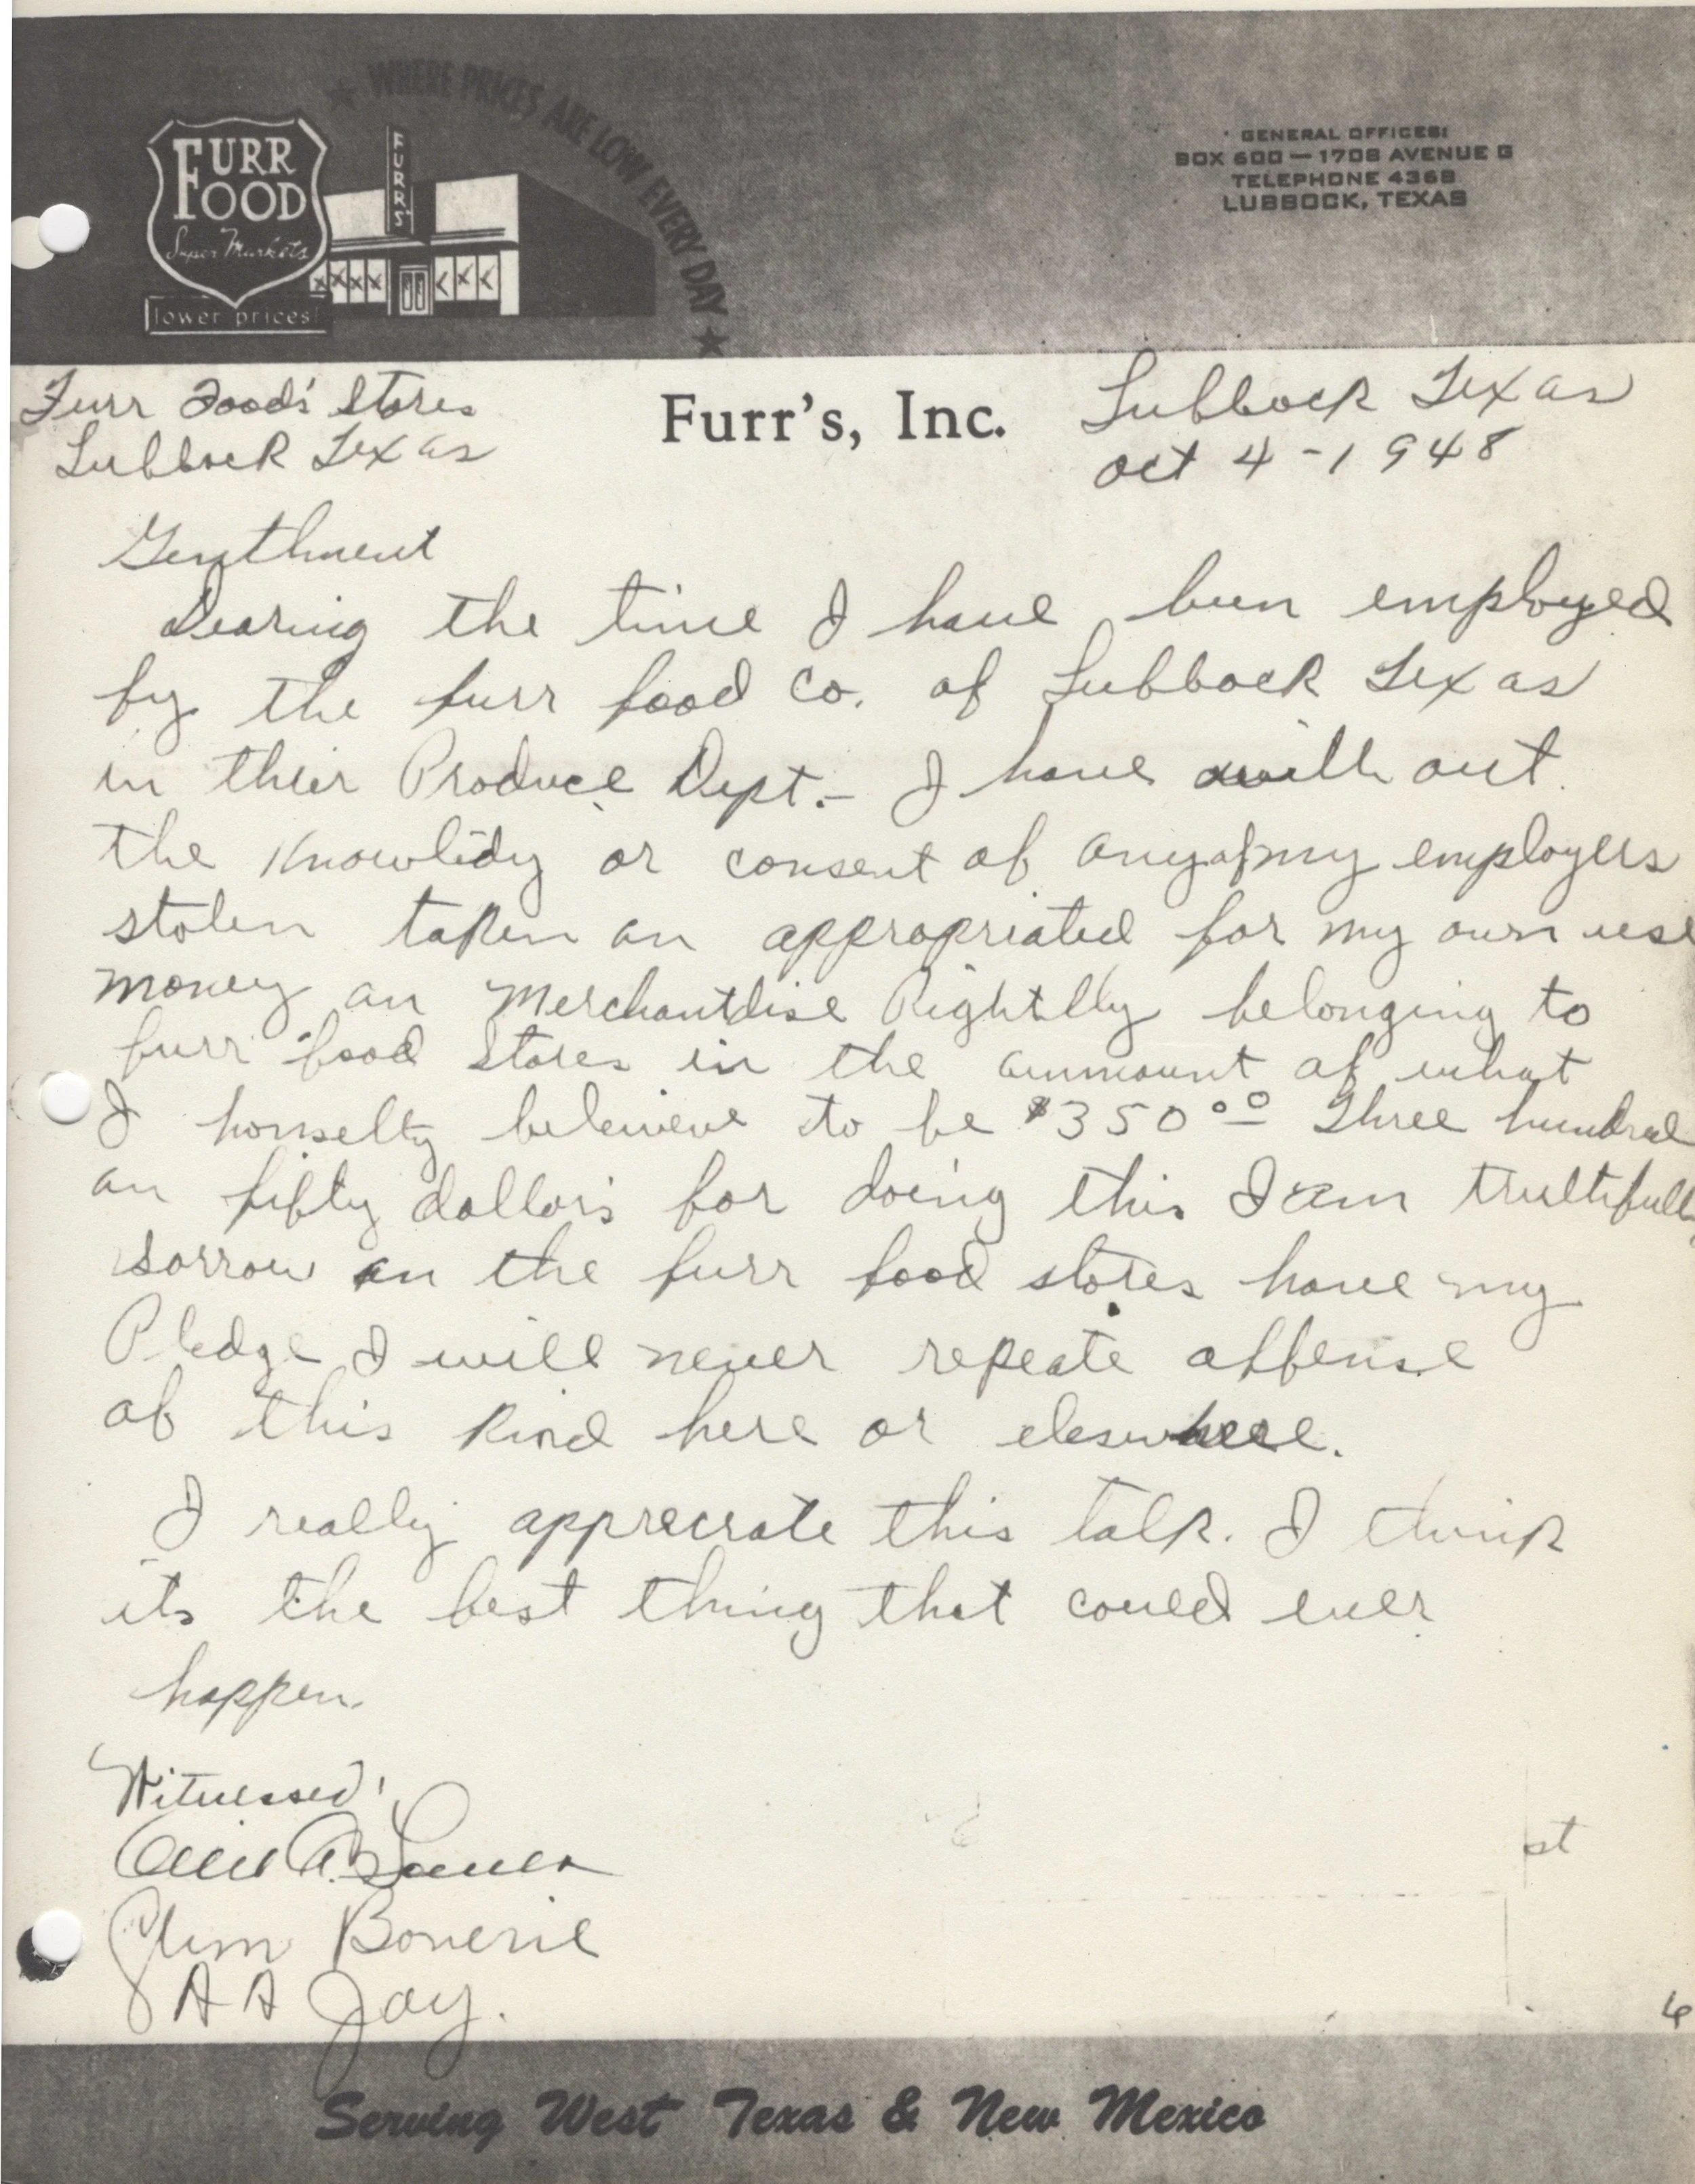 ★ WHERE PRICES ARE LOW EVERY DAY ★
FURR
FOOD
Super Markets
lower prices!
FURR'S
GENERAL OFFICES:
BOX 600 — 1708 AVENUE G
TELEPHONE 4368
LUBBOCK, TEXAS
Furr's, Inc.
Furr Food's Stores
Lubbock Texas
Lubbock Texas
Oct 4-1948
Genthment
Dearing the time I have been employed
by the furr food Co. of Lubbock Texas
in thier Produce Dept.- I have with out
the Knowlidy or consent of any of my employers
stolen taken an appropriated for my own use
money an Merchantdise Rightlly belonging to
furr food stores in the ammount of what
I honselty beleieve to be $350.00 Three hundred
an fifty dollors for doing this I am truthfully
sorrow an the furr food stores have my
Pledge I will never repeate offense
of this kind here or eleswhere.
I really apprecrate this talk. I think
its the best thing that could ever
happen.
Witnessed:
A A Joy.
st
6
Serving West Texas & New Mexico